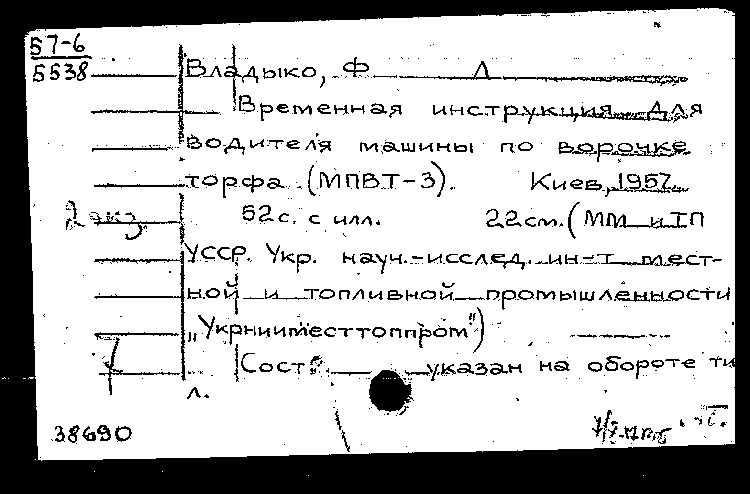 57-6
5538
Владыко, Ф Л
Временная инструкция для
водителя машины по ворочке
торфа (МПВТ-3). Киев, 1957.
2 экз. 52 с. с илл. 22 см. (ММ и ТП
УССР. Укр. науч.-исслед. ин-т мест-
ной и топливной промышленности
„Укрнииместтоппром")
Сост. указан на обороте ти
л.
38690